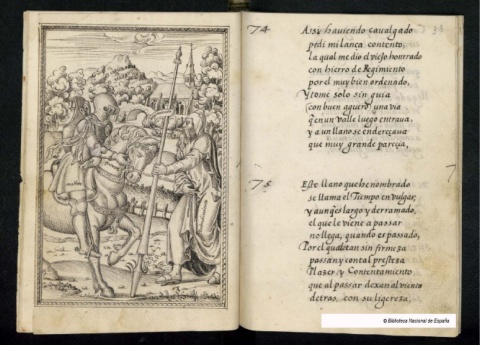 74
Assi haviendo cavalgado
pedi mi lança contento,
la qual me dio el viejo honrrado
con hierro de Regimiento
por el muy bien ordenado,
Y tome solo sin guia
con buen aguero una via
q̃ en un valle luego entrava,
y a un llano se endereçava
que muy grande parecia,
75
Este llano que he nombrado
se llama el Tiempo en vulgar,
y aunq̃ es largo y derramado,
el que le viene a passar
no llega, quando es passado,
Por el qual tan sin firmeza
passan y con tal presteza
Plazer, y Contentamiento
que al passar dexan al viento
detras, con su ligereza,
© Biblioteca Nacional de España